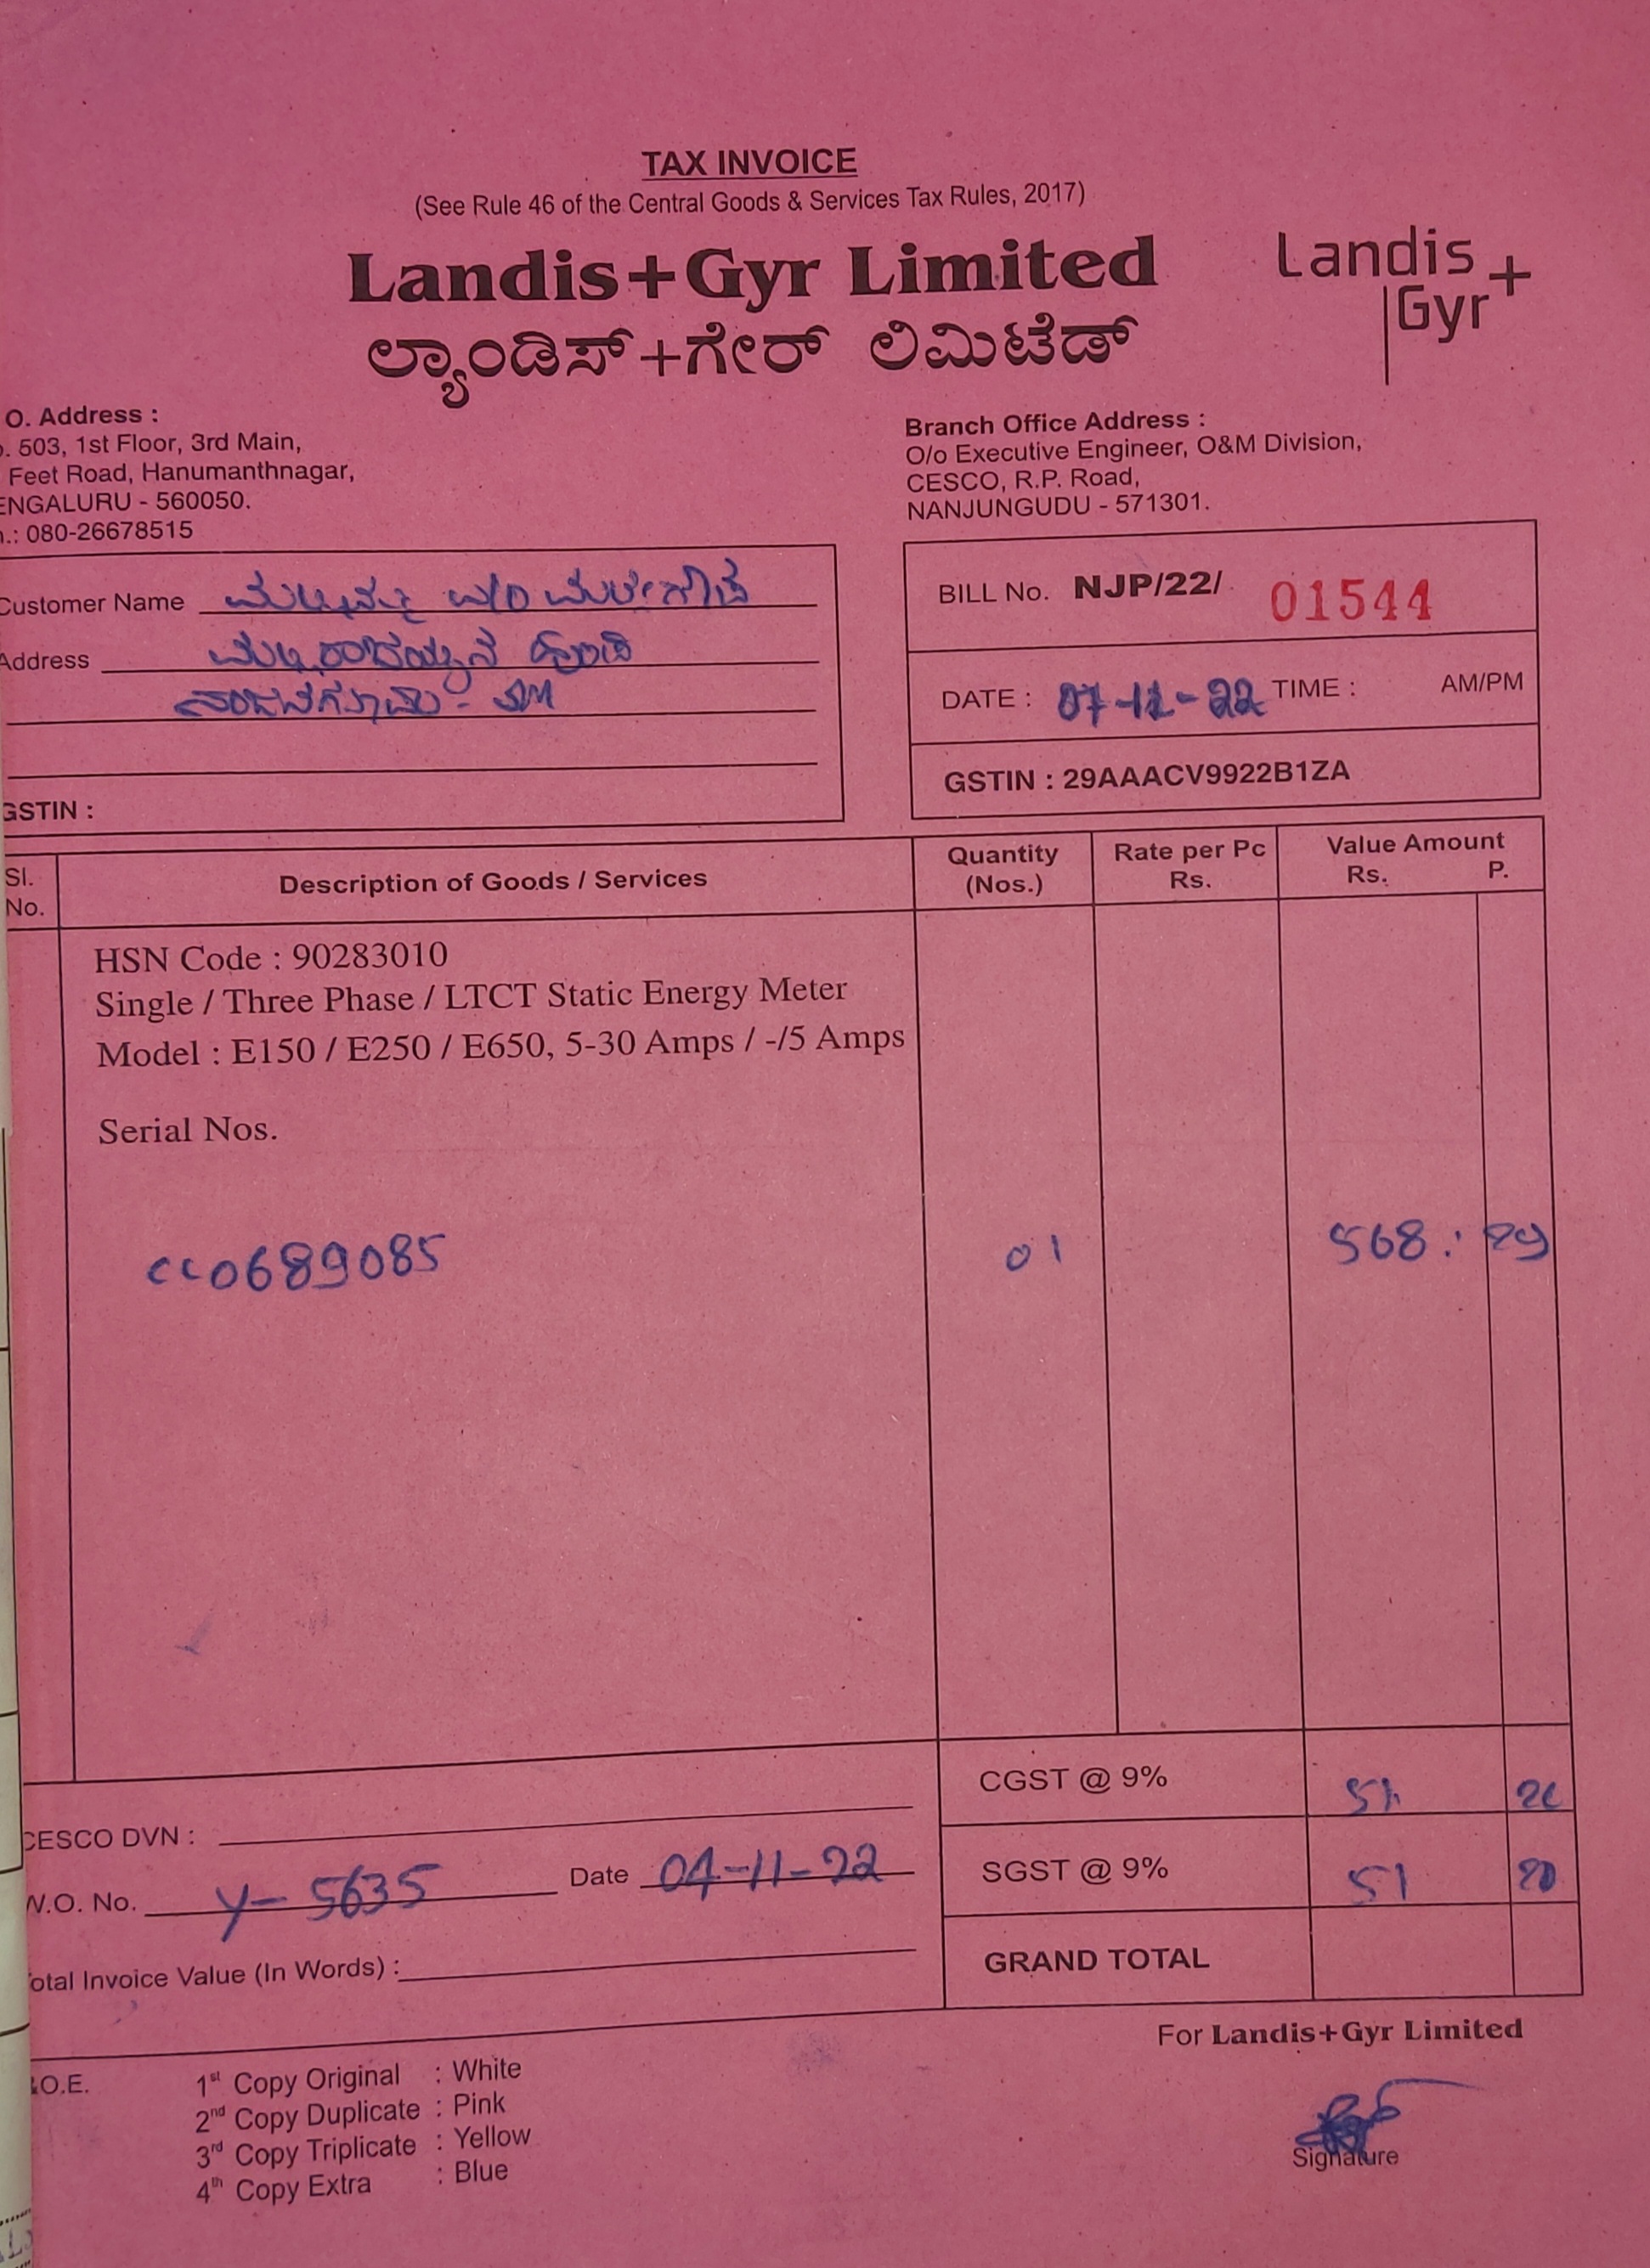 TAX INVOICE
(See Rule 46 of the Central Goods & Services Tax Rules, 2017)
Landis+Gyr Limited
ಲ್ಯಾಂಡಿಸ್+ಗೇರ್ ಲಿಮಿಟೆಡ್
Landis+
Gyr
O. Address :
. 503, 1st Floor, 3rd Main,
Feet Road, Hanumanthnagar,
ENGALURU - 560050.
.: 080-26678515
Branch Office Address :
O/o Executive Engineer, O&M Division,
CESCO, R.P. Road,
NANJUNGUDU - 571301.
Customer Name
Address
GSTIN :
BILL No. NJP/22/ 01544
DATE : 07-11-22 TIME : AM/PM
GSTIN : 29AAACV9922B1ZA
Sl. No. Description of Goods / Services Quantity (Nos.) Rate per Pc Rs. Value Amount Rs. P.
HSN Code : 90283010
Single / Three Phase / LTCT Static Energy Meter
Model : E150 / E250 / E650, 5-30 Amps / -/5 Amps
Serial Nos.
CC0689085 01 568
CGST @ 9% 51
CESCO DVN :
W.O. No. Y- 5635 Date 04-11-22
SGST @ 9% 51
otal Invoice Value (In Words) :
GRAND TOTAL
For Landis+Gyr Limited
&O.E.
1st Copy Original : White
2nd Copy Duplicate : Pink
3rd Copy Triplicate : Yellow
4th Copy Extra : Blue
Signature